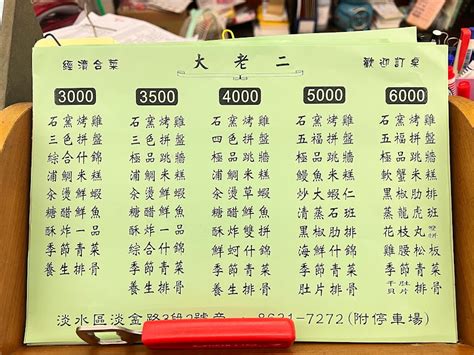 經濟合菜
大老二
歡迎訂桌
3000
石窯烤雞
三色拼盤
綜合什錦
浦鯛米糕
汆燙鮮蝦
糖醋鮮魚
酥炸一品
季節青菜
養生排骨
3500
石窯烤雞
三色拼盤
極品跳牆
浦鯛米糕
汆燙鮮蝦
糖醋鮮魚
酥炸一品
綜合什錦
季節青菜
養生排骨
4000
石窯烤雞
四色拼盤
極品跳牆
浦鯛米糕
汆燙鮮蝦
糖醋鮮魚
酥炸雙拼
鮮蚵什錦
季節青菜
養生排骨
5000
石窯烤雞
五福拼盤
極品跳牆
浦鯛米糕
炒大蝦仁
清蒸石斑
黑椒肋排
海鮮什錦
季節青菜
肚片排骨
6000
石窯烤雞
五福拼盤
極品跳牆
軟蟹米糕
黑椒肋排
蒸龍虎斑
花枝丸
雞腰松板
季節青菜
干貝肚片排骨
淡水區淡金路3段2號旁 8631-7272(附停車場)